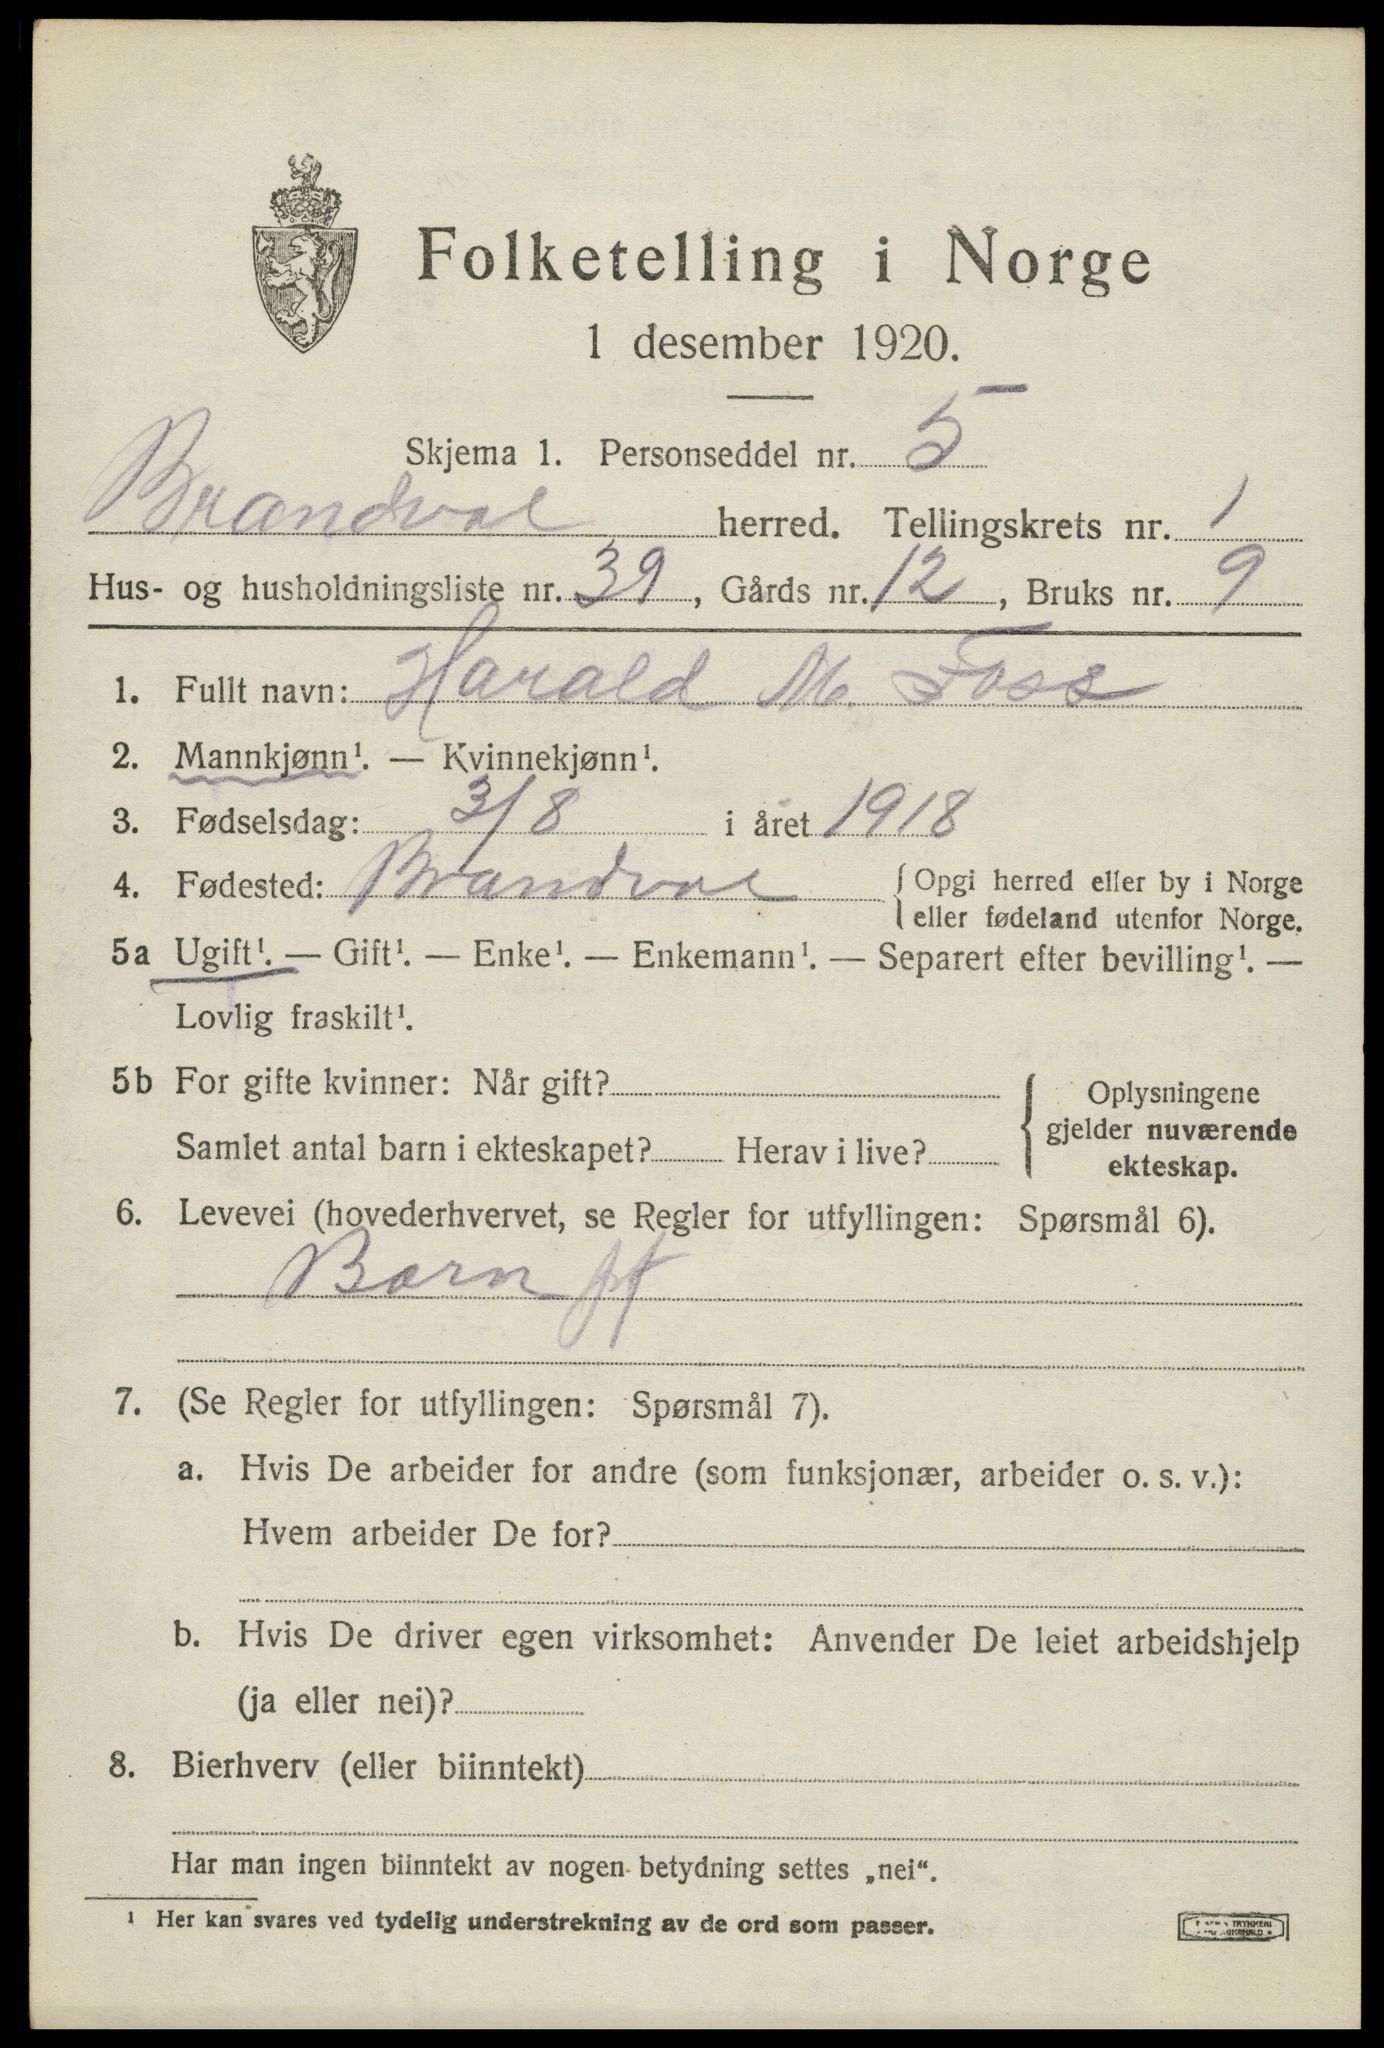 Folketelling i Norge
1 desember 1920.
Skjema 1. Personseddel nr. 5
Brandval herred. Tellingskrets nr. 1
Hus- og husholdningsliste nr. 39, Gårds nr. 12, Bruks nr. 9
1. Fullt navn: Harald M. Foss
2. Mannkjønn¹. — Kvinnekjønn¹.
3. Fødselsdag: 3/8 i året 1918
4. Fødested: Brandval { Opgi herred eller by i Norge
eller fødeland utenfor Norge.
5a Ugift¹. — Gift¹. — Enke¹. — Enkemann¹. — Separert efter bevilling¹. —
Lovlig fraskilt¹.
5b For gifte kvinner: Når gift?
Samlet antal barn i ekteskapet? Herav i live?
{ Oplysningene
gjelder nuværende
ekteskap.
6. Levevei (hovederhvervet, se Regler for utfyllingen: Spørsmål 6).
Barn
7. (Se Regler for utfyllingen: Spørsmål 7).
a. Hvis De arbeider for andre (som funksjonær, arbeider o. s. v.):
Hvem arbeider De for?
b. Hvis De driver egen virksomhet: Anvender De leiet arbeidshjelp
(ja eller nei)?
8. Bierhverv (eller biinntekt)
Har man ingen biinntekt av nogen betydning settes „nei“.
¹ Her kan svares ved tydelig understrekning av de ord som passer.